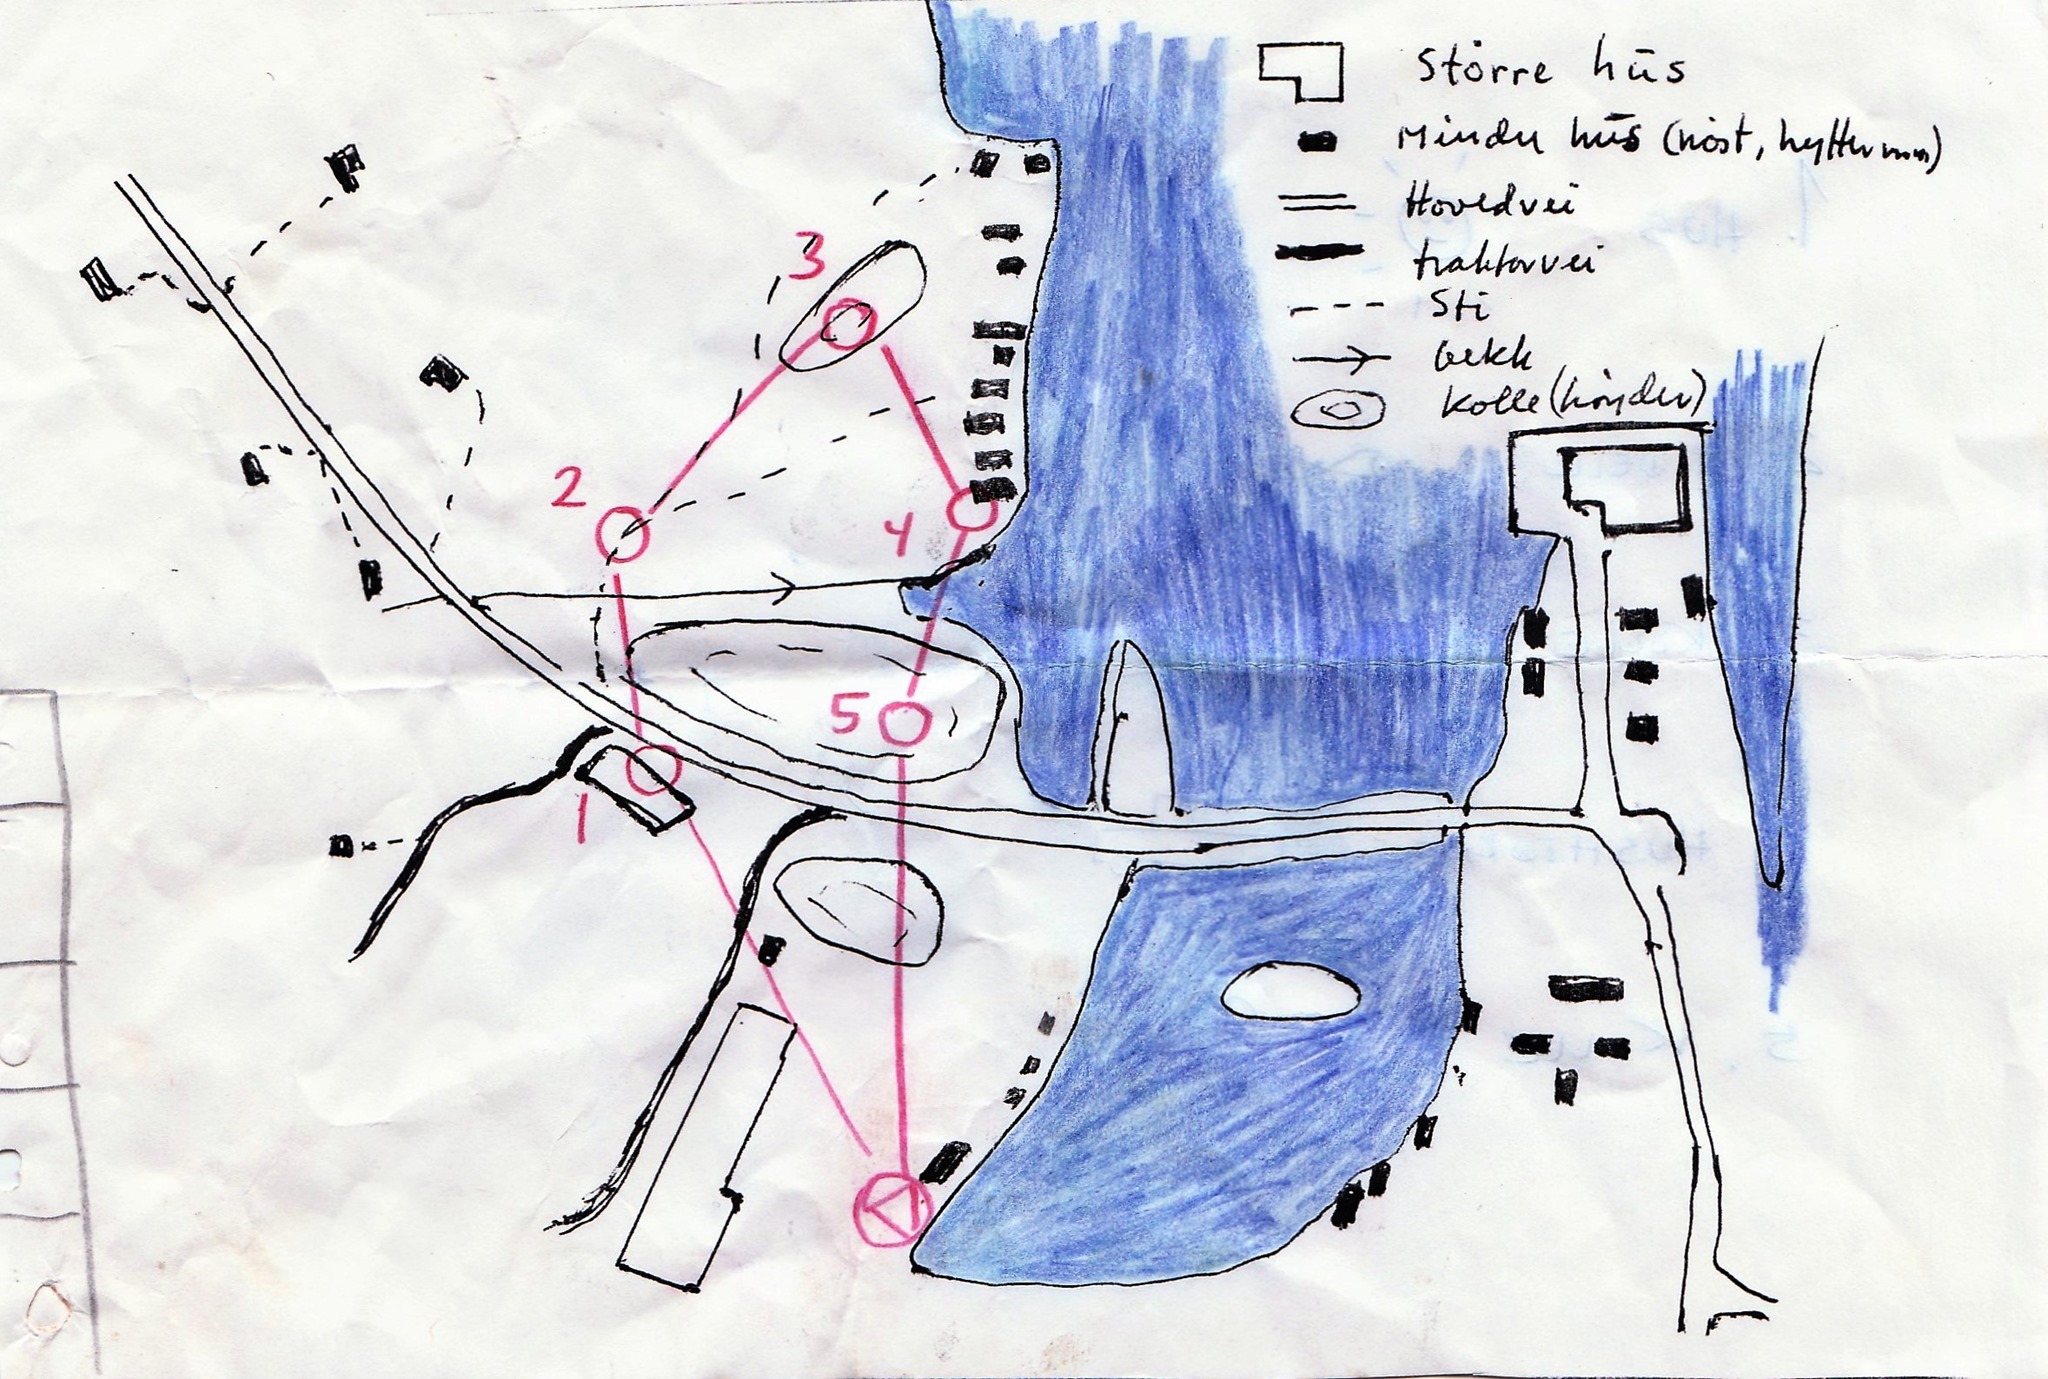 Större hūs
Minder hūs (nöst, hytter mm)
Hovedvei
traktorvei
Sti
bekk
Kolle (höyder)
3
2
4
5
1